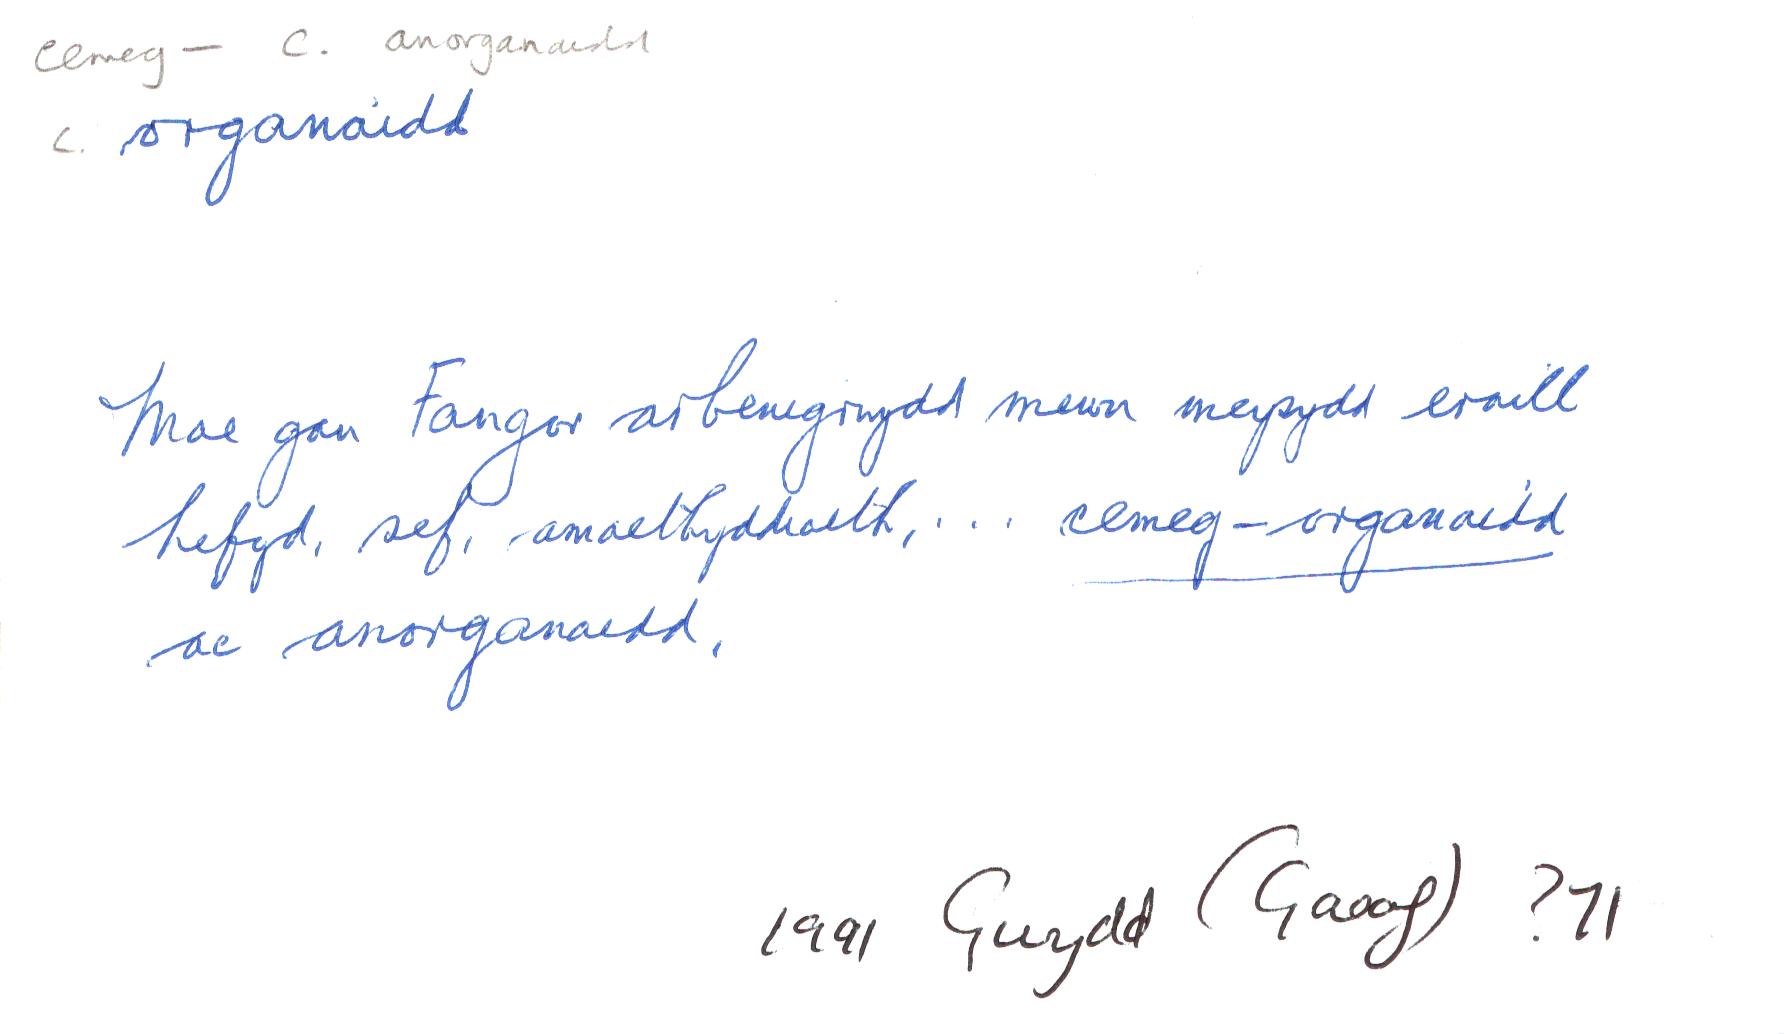 cemeg – c. anorganaidd
c. organaidd
Mae gan Fangor arbenigrwydd mewn meysydd eraill
hefyd, sef, amaethyddiaeth, ... cemeg-organaidd
ac anorganaidd.
1991 Gwydd (Gaeaf) ?71